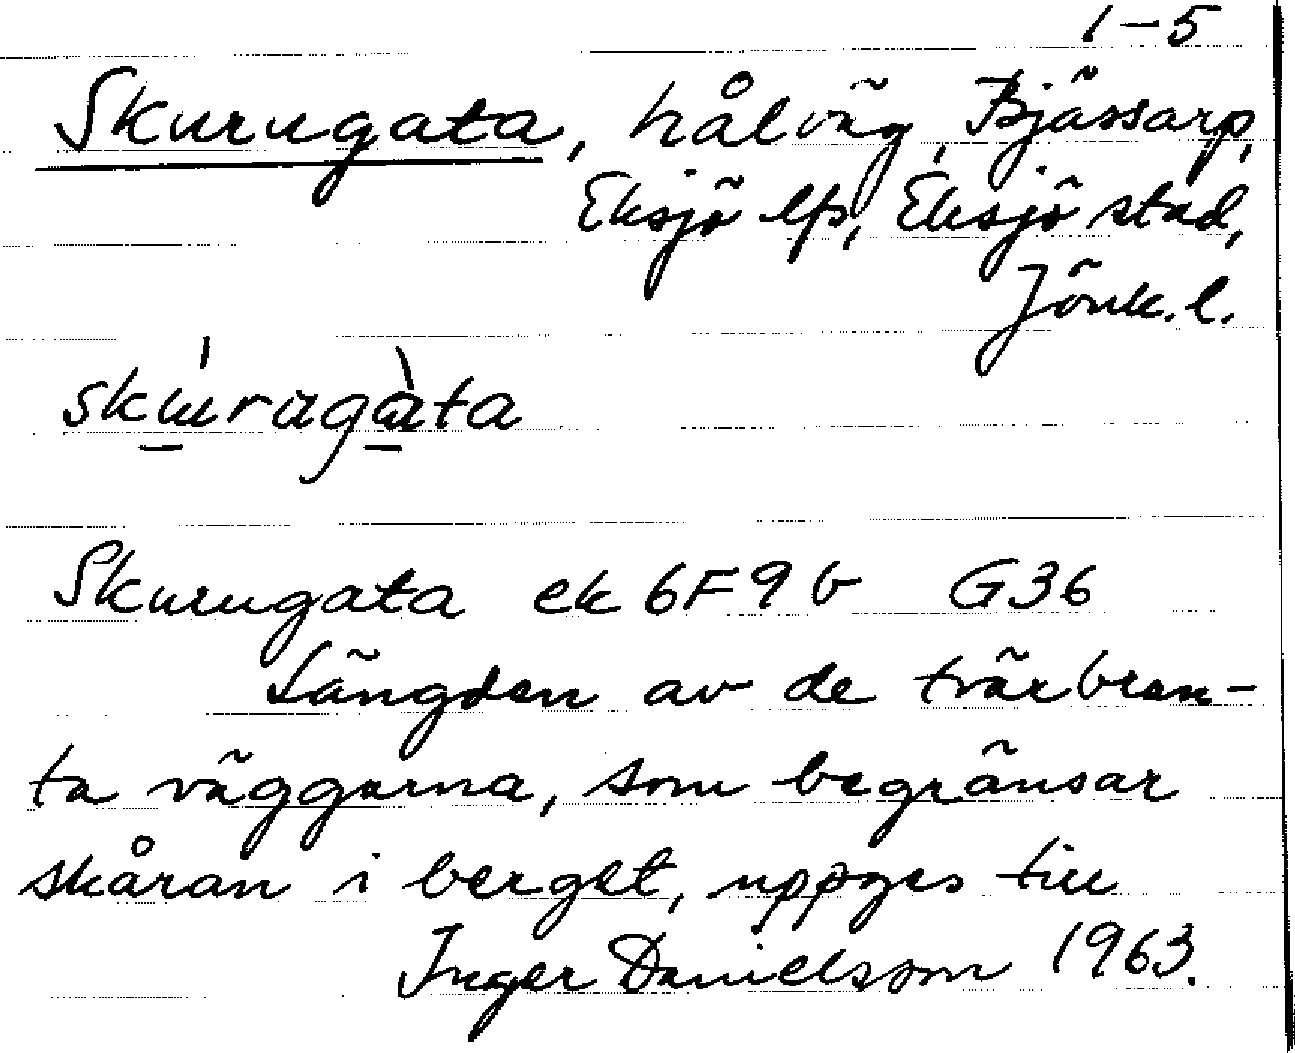 1-5
Skurugata, hålväg, Bjässarp,
Eksjö lfs, Eksjö stad,
Jönk. l.
skúrugàta
Skurugata ek 6F9b G36
Längden av de tvärbran-
ta väggarna, som begränsar
skåran i berget, uppges till
Inger Danielsson 1963.